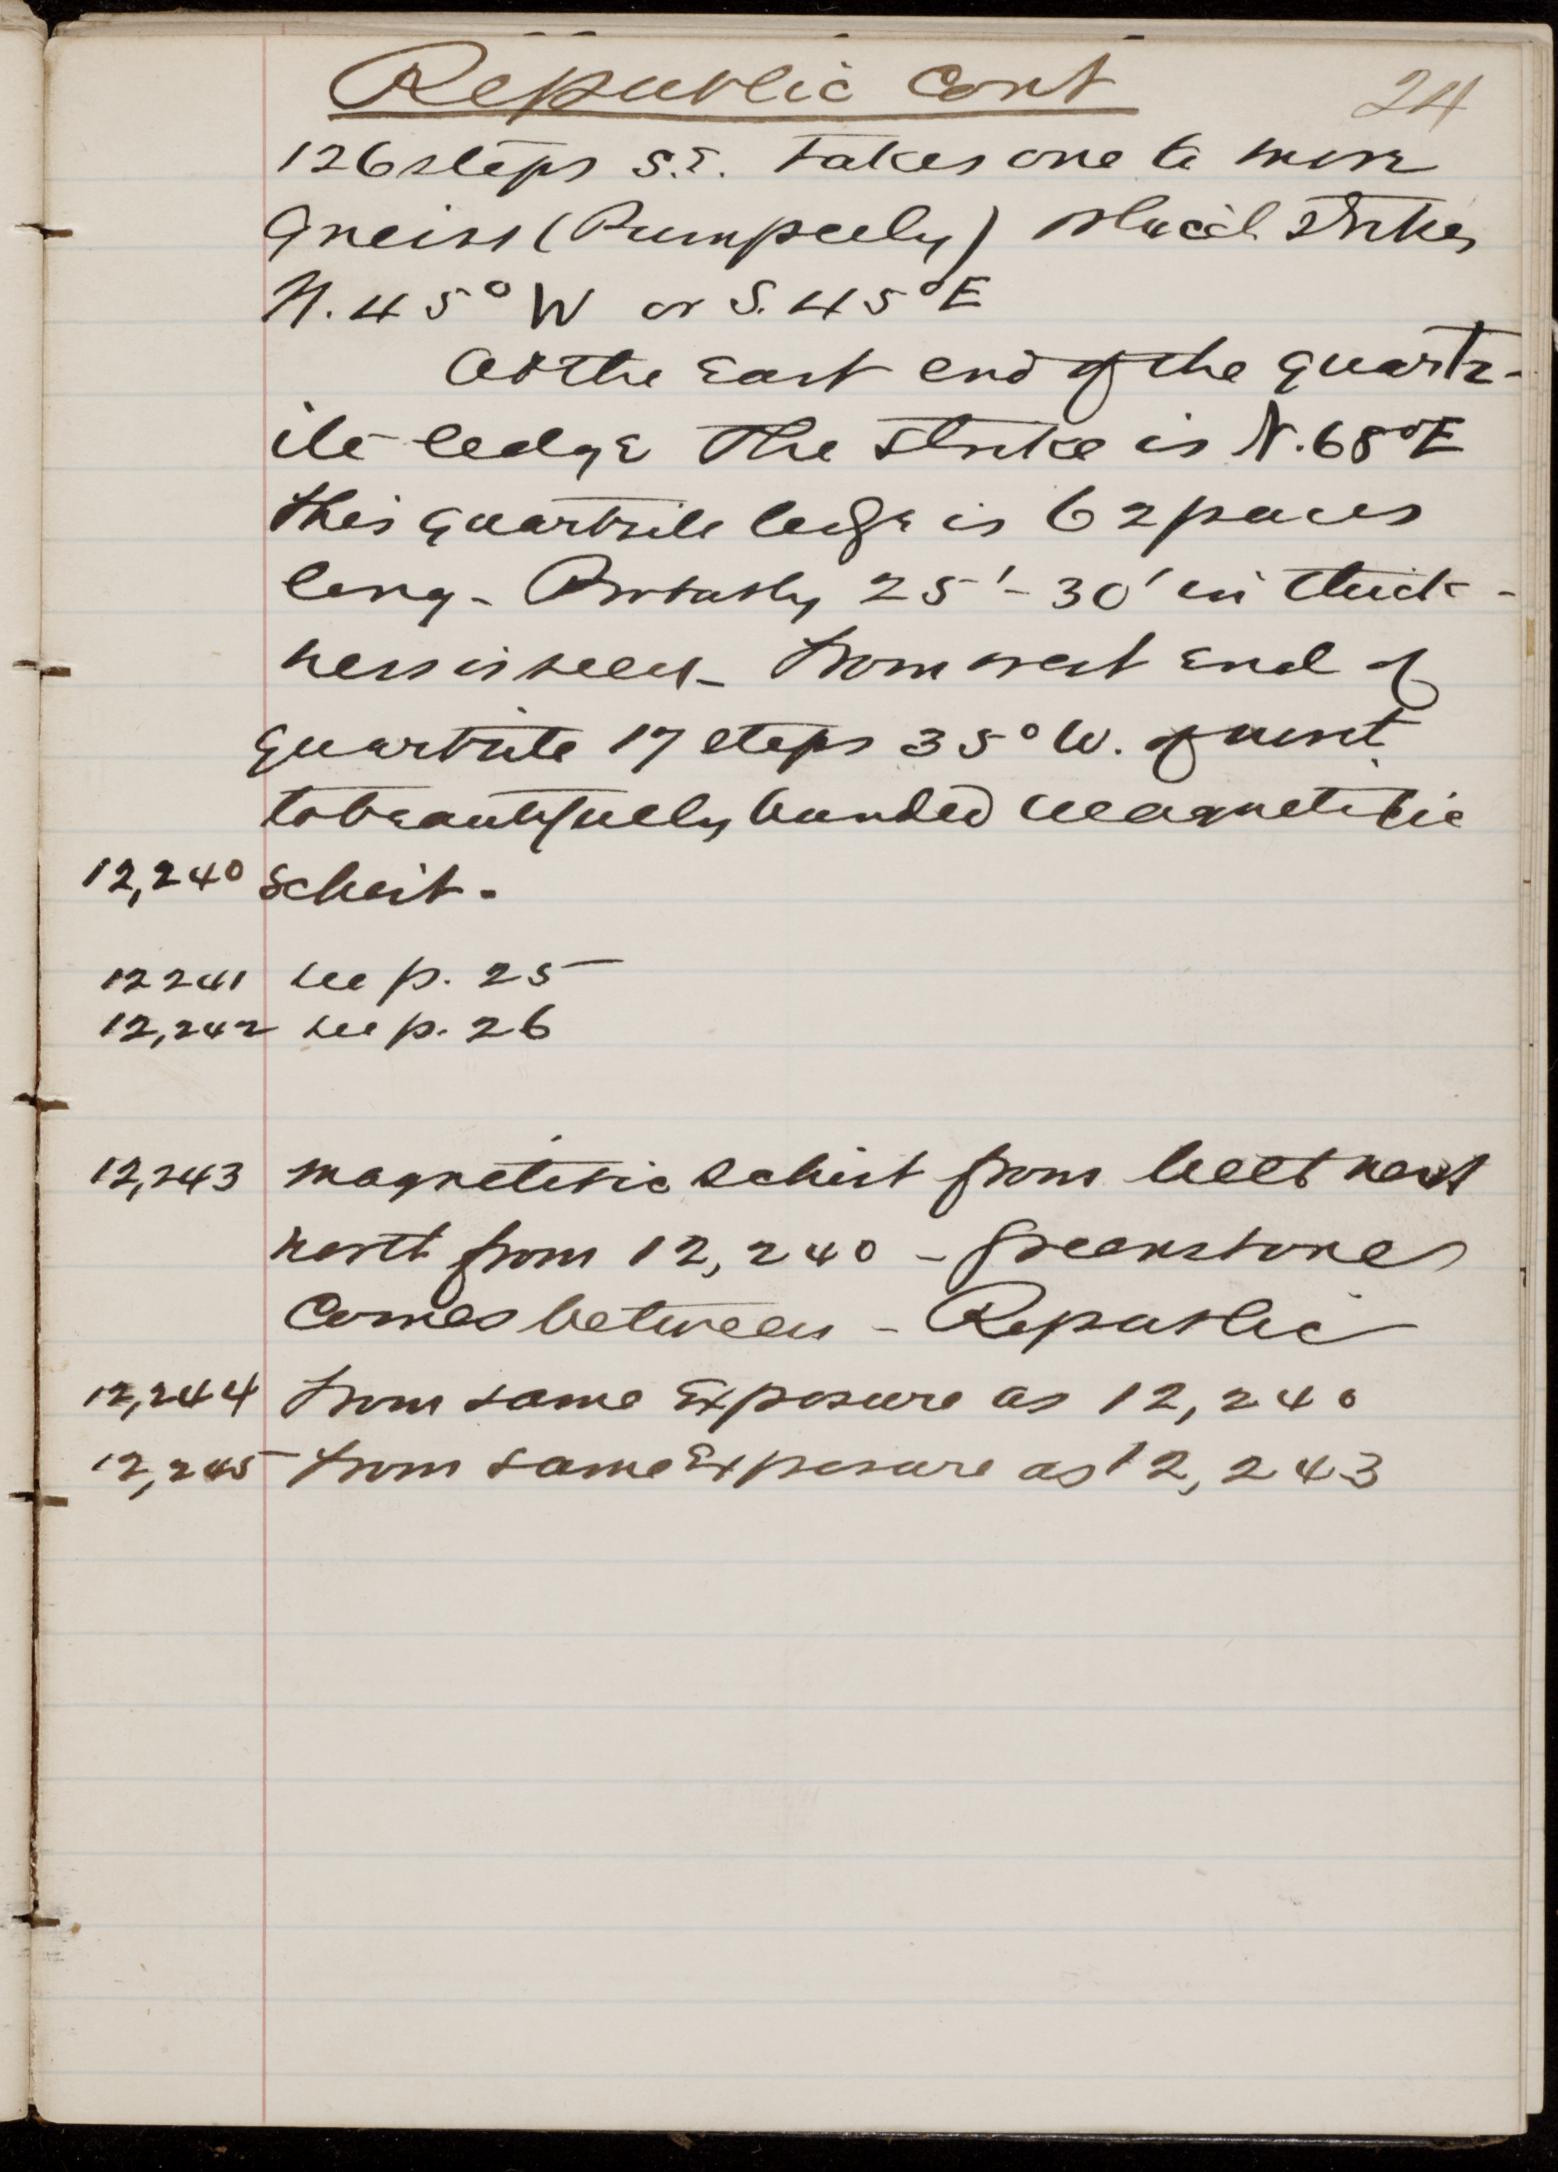 Republic Cont
24
126 steps S.E. takes one to more
Gneiss (Pumpelly) which strikes
N. 45° W or S. 45° E
At the East end of the quartz-
ite ledge the strike is N. 68° E
this quartzite ledge is 62 paces
long - Probably 25' - 30' in thick-
ness is seen - From west end of
quartzite 17 steps 35° W. of north
to beautifully banded magnetitic
12,240 schist.
12241 see p. 25
12,242 see p. 26
12,243 magnetitic schist from belt next
north from 12,240 - Greenstone
comes between - Republic
12,244 From same Exposure as 12,240
12,245 From same Exposure as 12,243